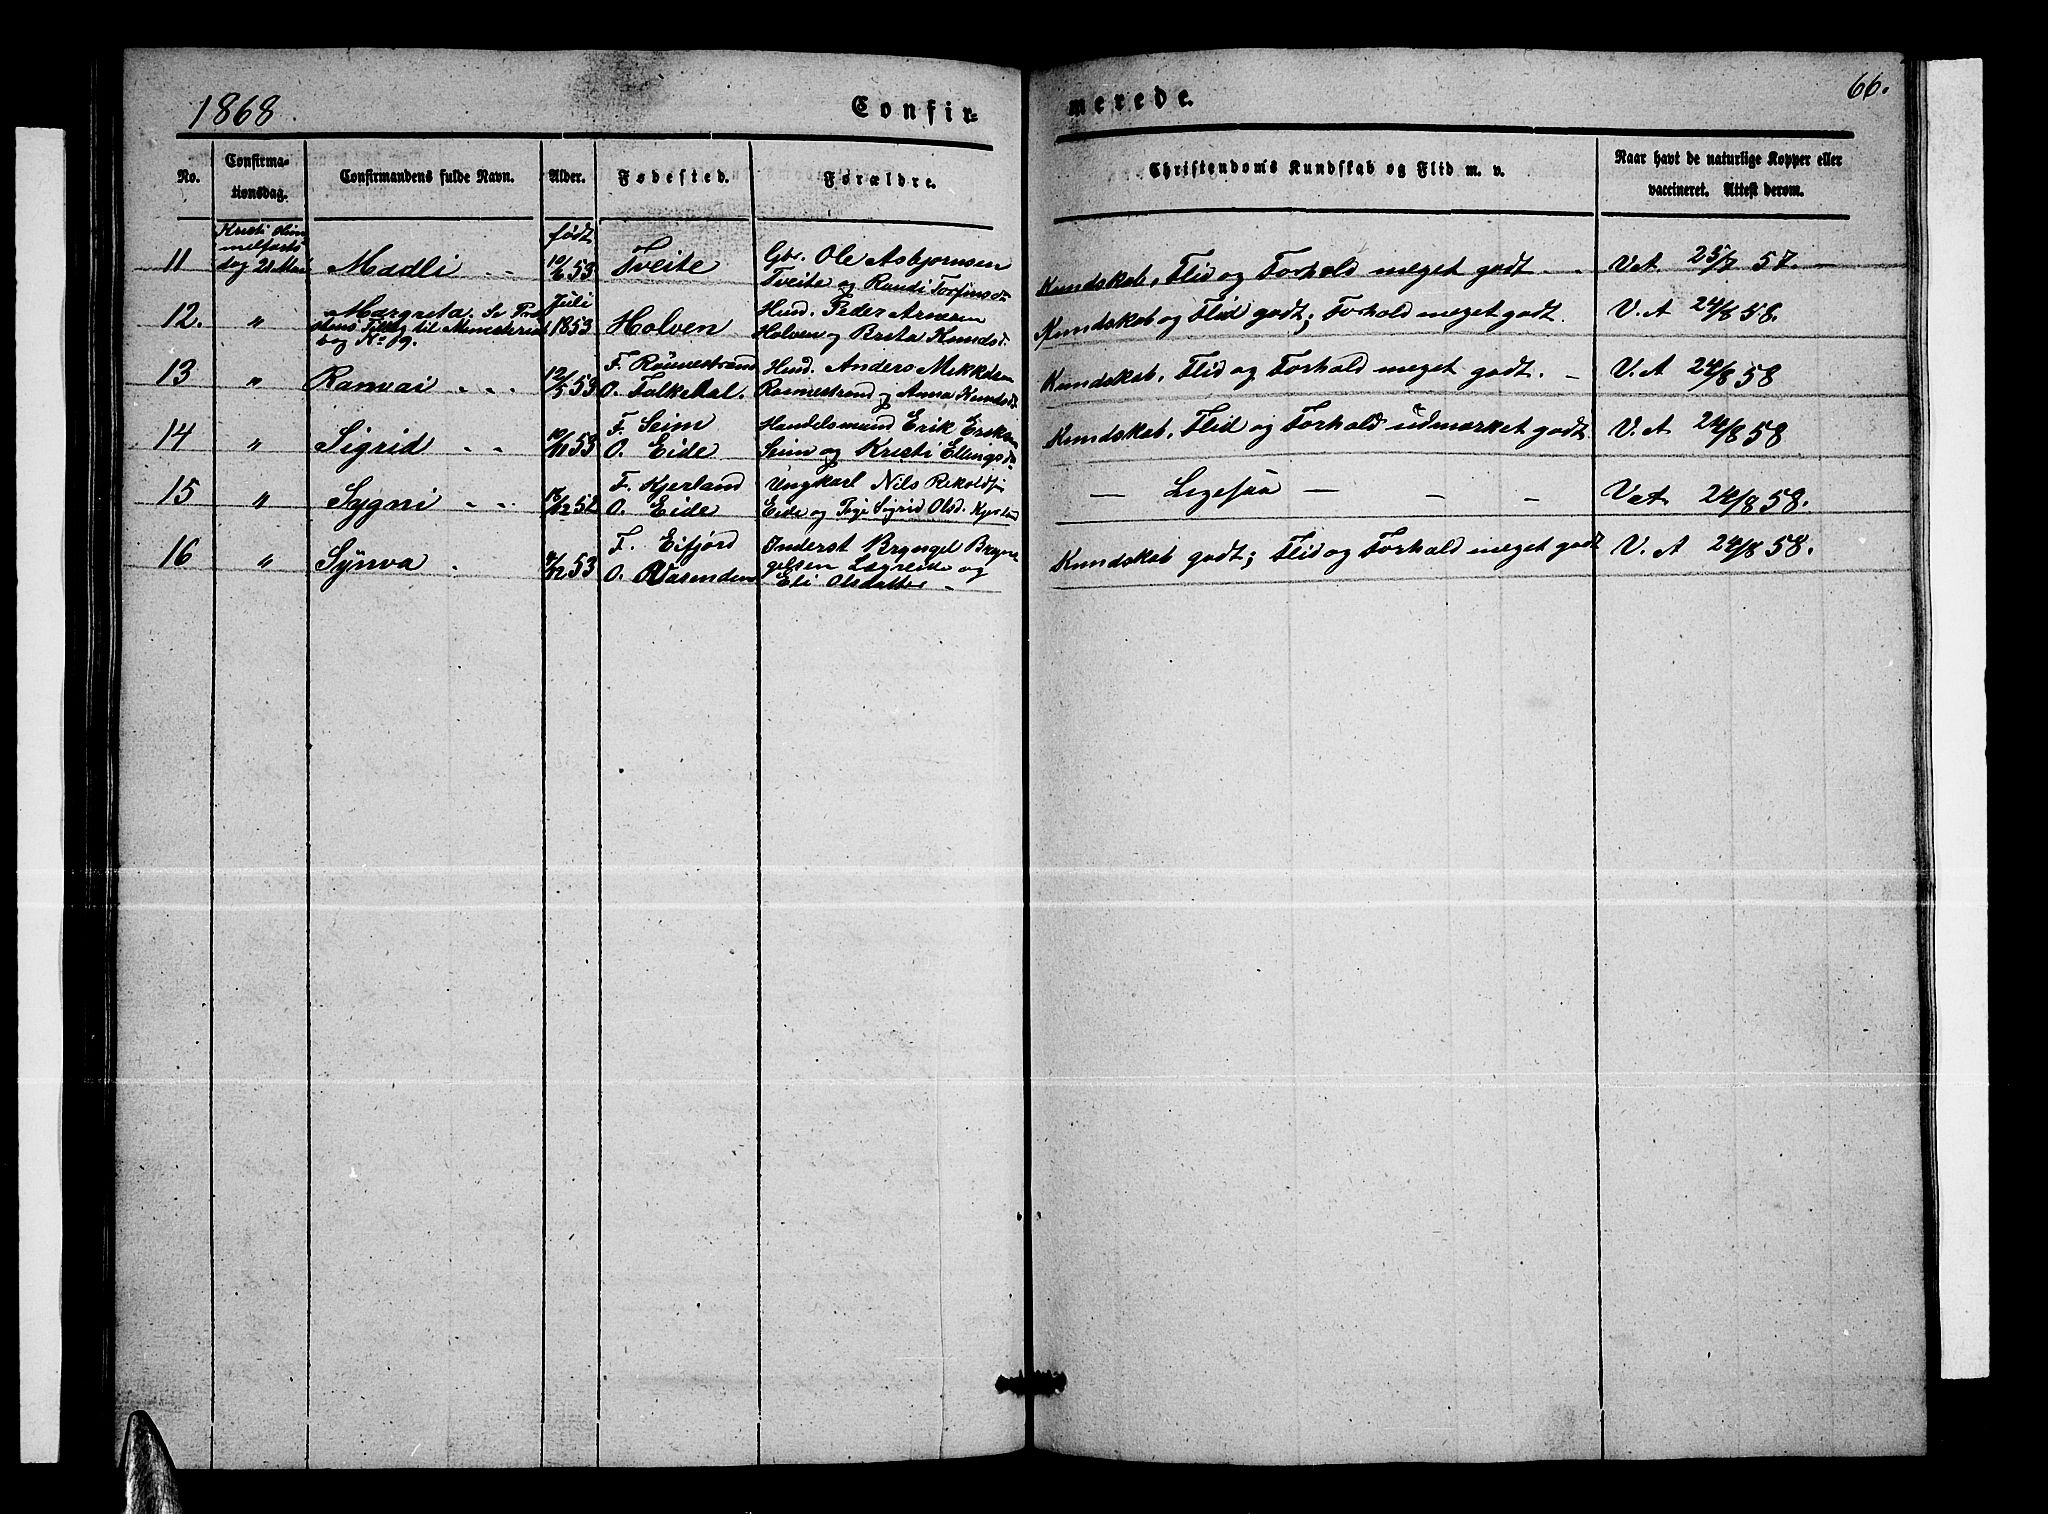 1868.
Confir=
merede.
66.
No.
Confirma-
tionsdag.
Confirmandens fulde Navn.
Alder.
Fødested.
Forældre.
Christendoms Kundskab og Flid m. v.
Naar havt de naturlige Kopper eller
vaccineret. Attest derom.
Kristi Him
melfarts
dag 21 Mai
født
11 Madli 10/6 53 Tveite
Gbr. Ole Asbjørnsen
Tveite og Randi Torfinsd.
Kundskab, Flid og Forhold meget godt.
V.A 25/7 57.
12. " Margreta. Se Pro
stens Tillæg til Ministerial
bog No 19.
Juli
1853
Holven
Hmd. Peder Arnesen
Holven og Brita Knudsd.
Kundskab og Flid godt; Forhold meget godt.
V. A 24/8 58.
13 " Ranvai 12/5 53
F. Rønnestrand
O. Folkedal.
Hmd. Anders Mikkelsen
Rønnestrand og Anna Knudsd.
Kundskab, Flid og Forhold meget godt.
V. A 24/8 58
14 " Sigrid 10/11 53
F. Seim
O. Eide
Handelsmand Erik Eriksen
Seim og Kristi Ellingsd.
Kundskab, Flid og Forhold udmærket godt
V. A 24/8 58
15 " Sygni /12 52
F. Kjerland
O. Eide
Ungkarl Nils
Eide og Pige Sigrid Olsd. Kjerland
— Ligesaa — — —
V. A 24/8 58.
16 " Synva /12 53
F. Eifjord
O. Vasenden
Inderst Bryngel Bryn
gelsen Lægreide og
Eli Olsdatter
Kundskab godt; Flid og Forhold meget godt
V. A 24/8 58.